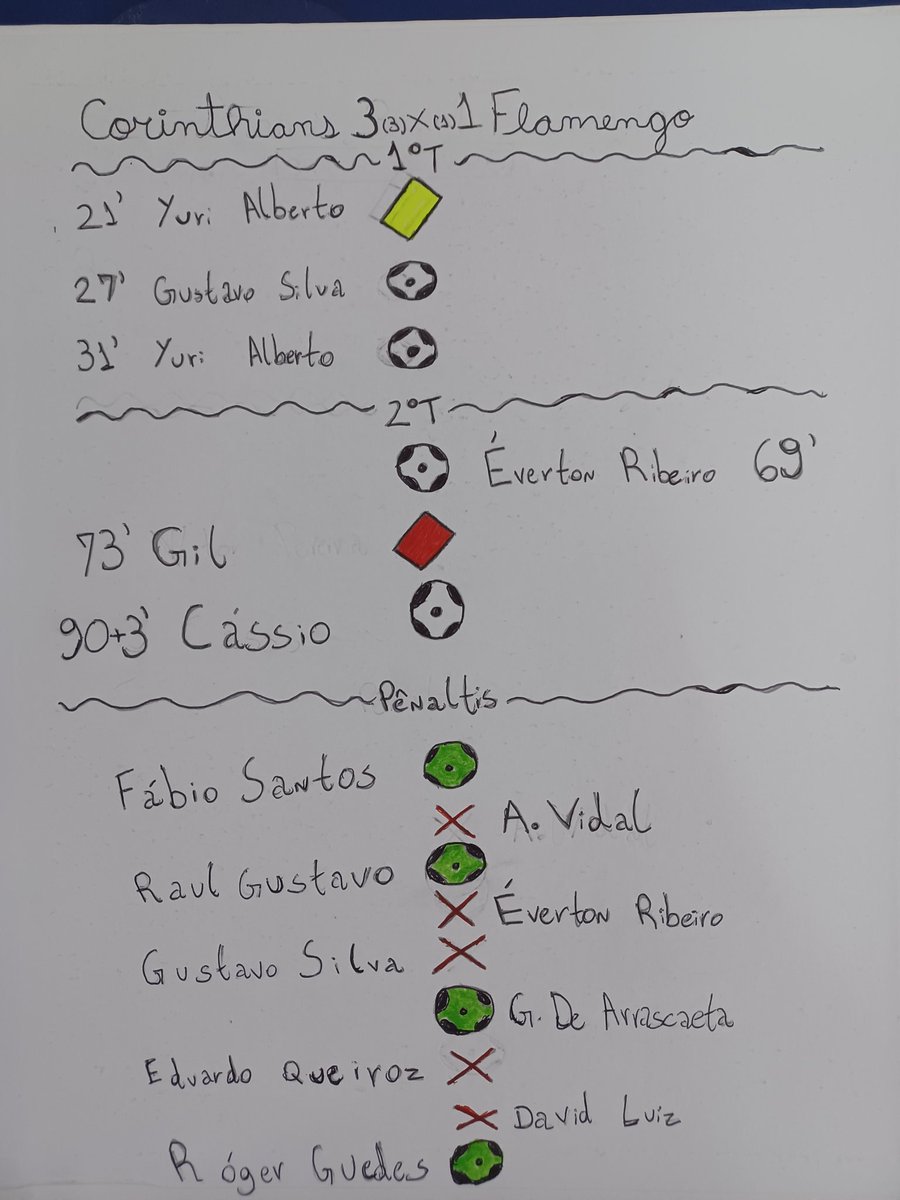 Corinthians 3(3)X(1)1 Flamengo
1ºT
21' Yuri Alberto
27' Gustavo Silva
31' Yuri Alberto
2ºT
Éverton Ribeiro 69'
73' Gil
90+3' Cássio
Pênaltis
Fábio Santos
A. Vidal
Raul Gustavo
Éverton Ribeiro
Gustavo Silva
G. De Arrascaeta
Eduardo Queiroz
David Luiz
Róger Guedes